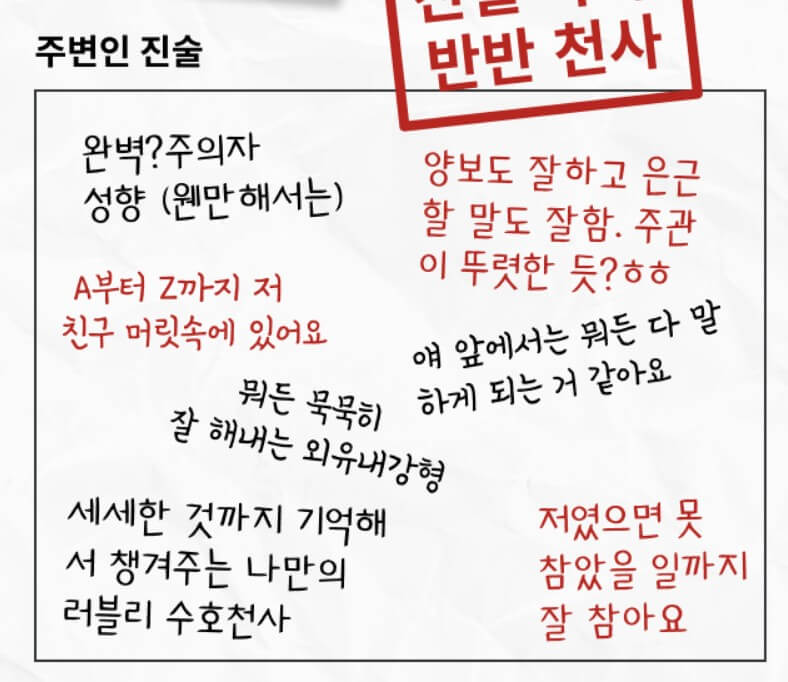 반반 천사
주변인 진술
완벽?주의자
성향 (웬만해서는)
양보도 잘하고 은근
할 말도 잘함. 주관
이 뚜렷한 듯?ㅎㅎ
A부터 Z까지 저
친구 머릿속에 있어요
얘 앞에서는 뭐든 다 말
하게 되는 거 같아요
뭐든 묵묵히
잘 해내는 외유내강형
세세한 것까지 기억해
서 챙겨주는 나만의
러블리 수호천사
저였으면 못
참았을 일까지
잘 참아요